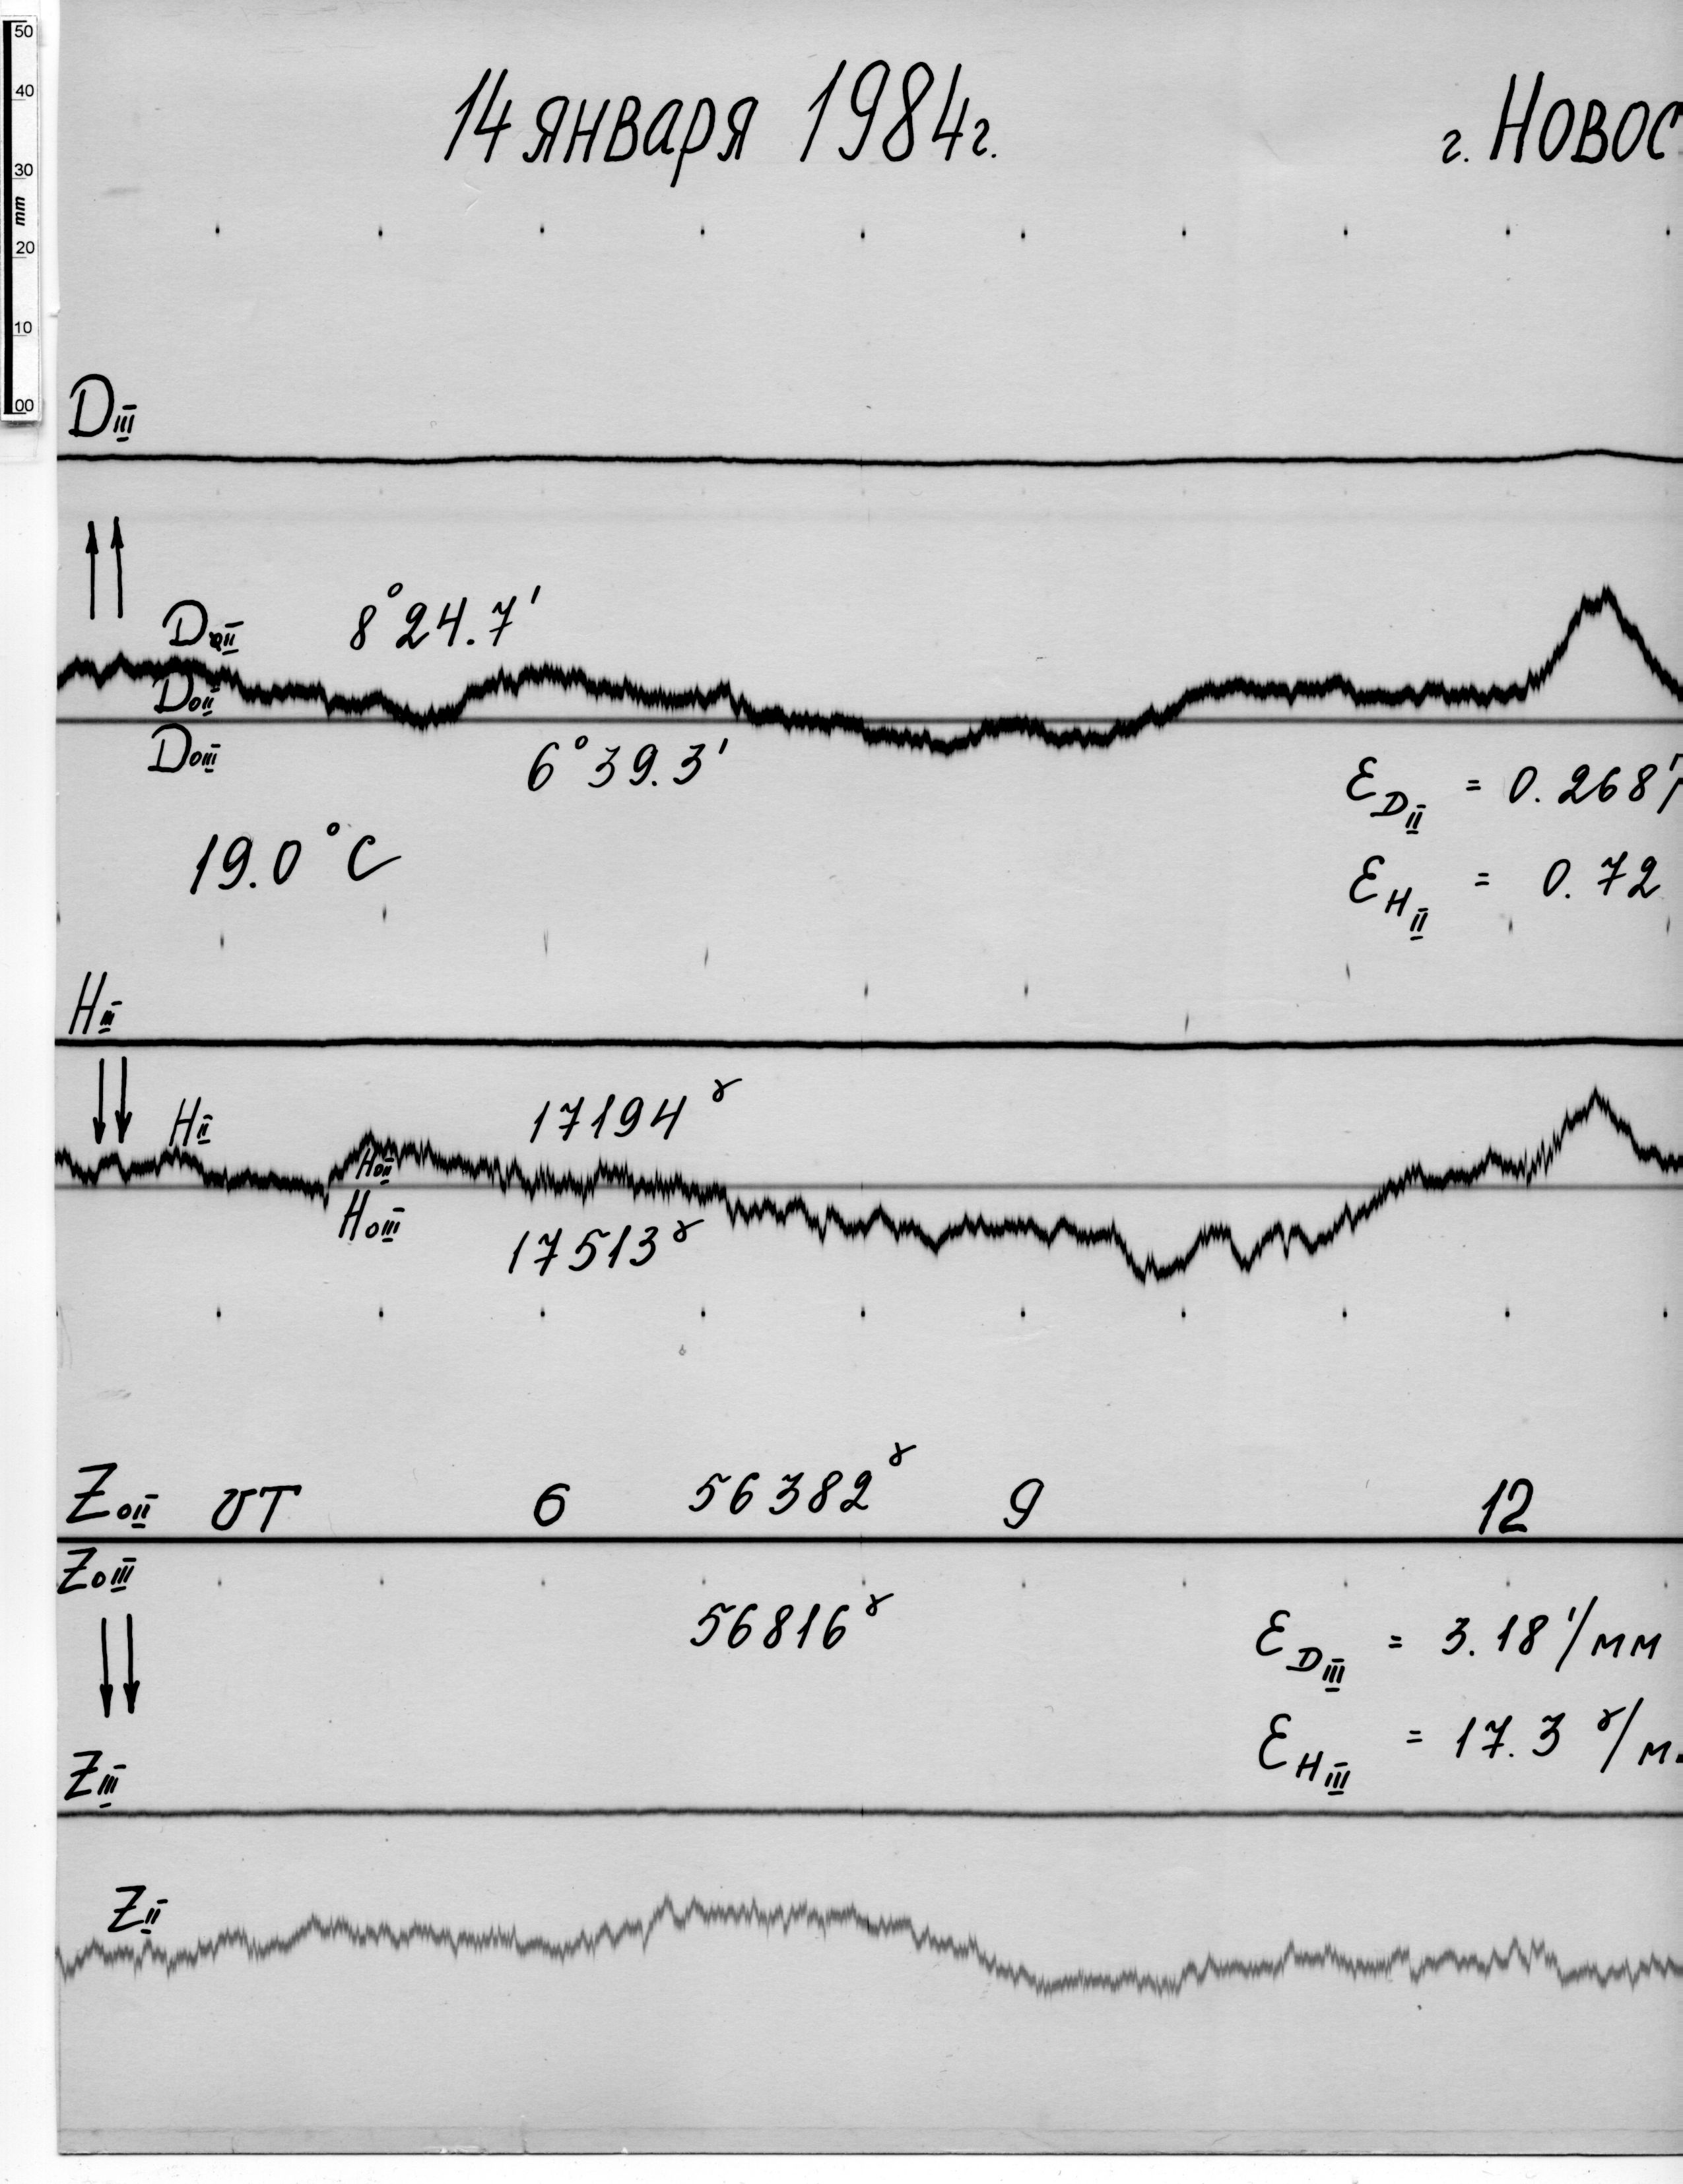 50
40
30
mm
20
10
00
14 января 1984г.
г. Новос
DIII
DII 8°24.7'
D0II
D0III 6°39.3'
19.0°C
εDII = 0.268'/
εHII = 0.72
HIII
HII 17194γ
H0II
H0III 17513γ
Z0II UT 6 56382γ 9 12
Z0III
56816γ
εDIII = 3.18'/мм
εHIII = 17.3 γ/м
ZIII
ZII